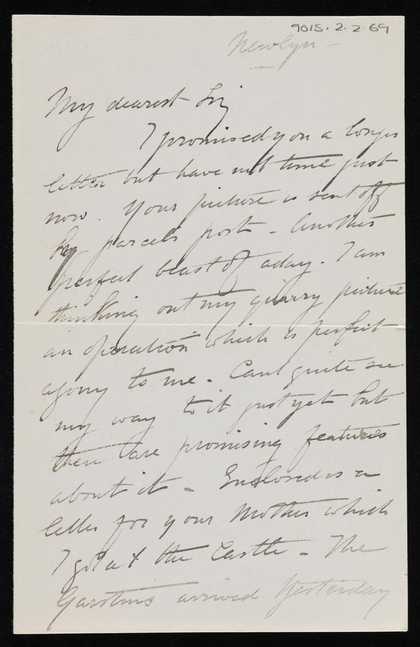 9015.2.2.69
Newlyn -
My dearest
I promised you a longer
letter but have not time just
now. Your picture is sent off
by parcels post - Another
perfect beast of a day. I am
thinking out my quarry picture
an operation which is perfect
agony to me - Cant quite see
my way to it just yet but
there are promising features
about it - Enclosed is a
letter for your Mother which
I got at the Castle - The
Garstins arrived yesterday